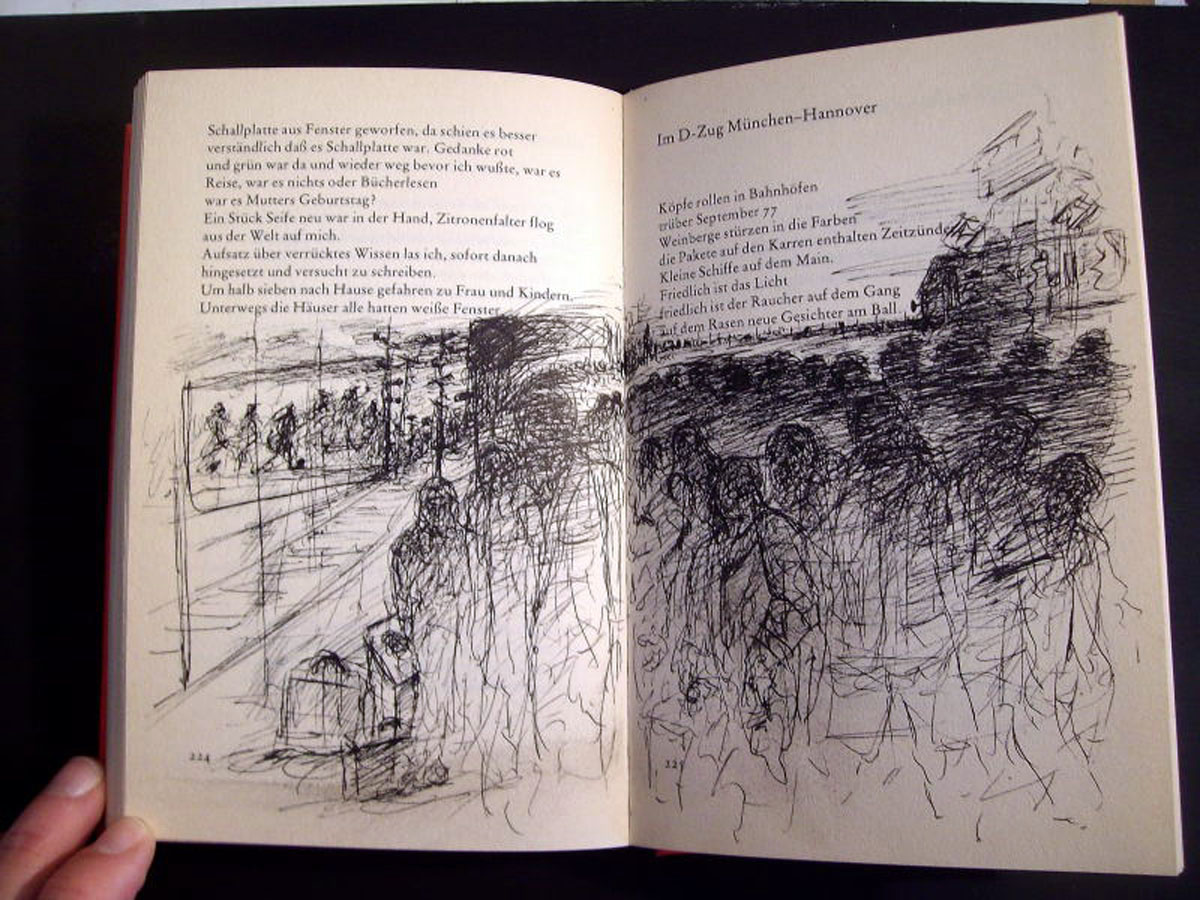 Schallplatte aus Fenster geworfen, da schien es besser
verständlich daß es Schallplatte war. Gedanke rot
und grün war da und wieder weg bevor ich wußte, war es
Reise, war es nichts oder Bücherlesen
war es Mutters Geburtstag?
Ein Stück Seife neu war in der Hand, Zitronenfalter flog
aus der Welt auf mich.
Aufsatz über verrücktes Wissen las ich, sofort danach
hingesetzt und versucht zu schreiben.
Um halb sieben nach Hause gefahren zu Frau und Kindern.
Unterwegs die Häuser alle hatten weiße Fenster
224
Im D-Zug München–Hannover
Köpfe rollen in Bahnhöfen
trüber September 77
Weinberge stürzen in die Farben
die Pakete auf den Karren enthalten Zeitzünder
Kleine Schiffe auf dem Main.
Friedlich ist das Licht
friedlich ist der Raucher auf dem Gang
auf dem Rasen neue Gesichter am Ball
225